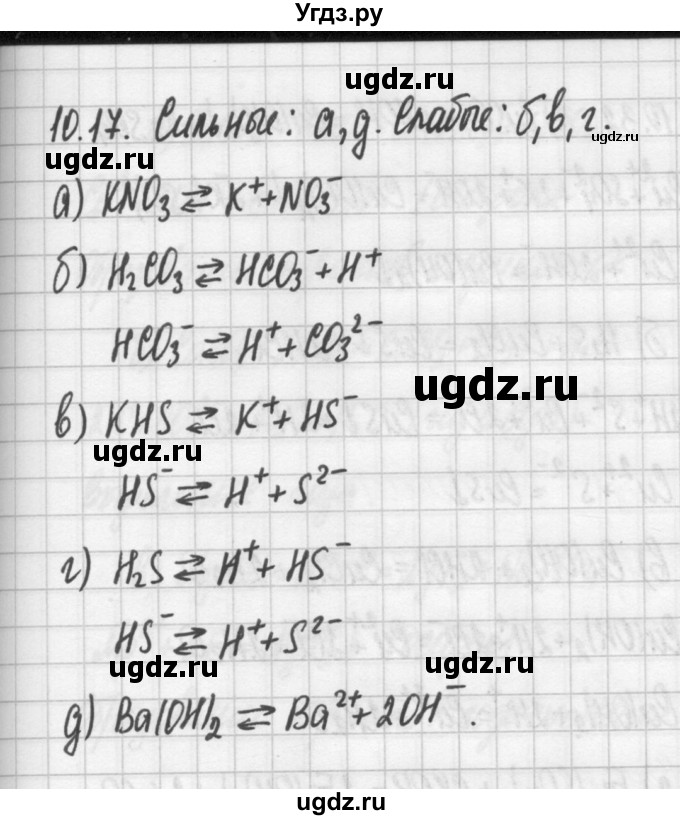 Угдз.ру
ugdz.ru
10.17. Сильные: а,д. Слабые: б,в,г.
ugdz.ru
а) KNO₃ ⇄ K⁺+NO₃⁻
б) H₂CO₃ ⇄ HCO₃⁻+H⁺
HCO₃⁻ ⇄ H⁺+CO₃²⁻
ugdz.ru
в) KHS ⇄ K⁺+HS⁻
ugdz.ru
HS⁻ ⇄ H⁺+S²⁻
г) H₂S ⇄ H⁺+HS⁻
HS⁻ ⇄ H⁺+S²⁻
ugdz.ru ugdz.ru
д) Ba(OH)₂ ⇄ Ba²⁺+2OH⁻.
ugdz.ru